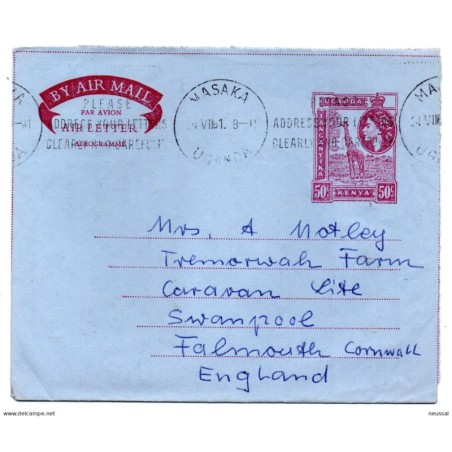 BY AIR MAIL
PAR AVION
AIR LETTER
AEROGRAMME
PLEASE
ADDRESS YOUR LETTERS
CLEARLY
MASAKA
VII 61. 8-
UGANDA
ADDRESS YOUR
CLEARLY
MA
UG
UGANDA
TANGANYIKA
KENYA
50c
50c
Mrs. A Motley
Tremorwah Farm
Caravan Site
Swanpool
Falmouth Cornwall
England
www.delcampe.net
neussal